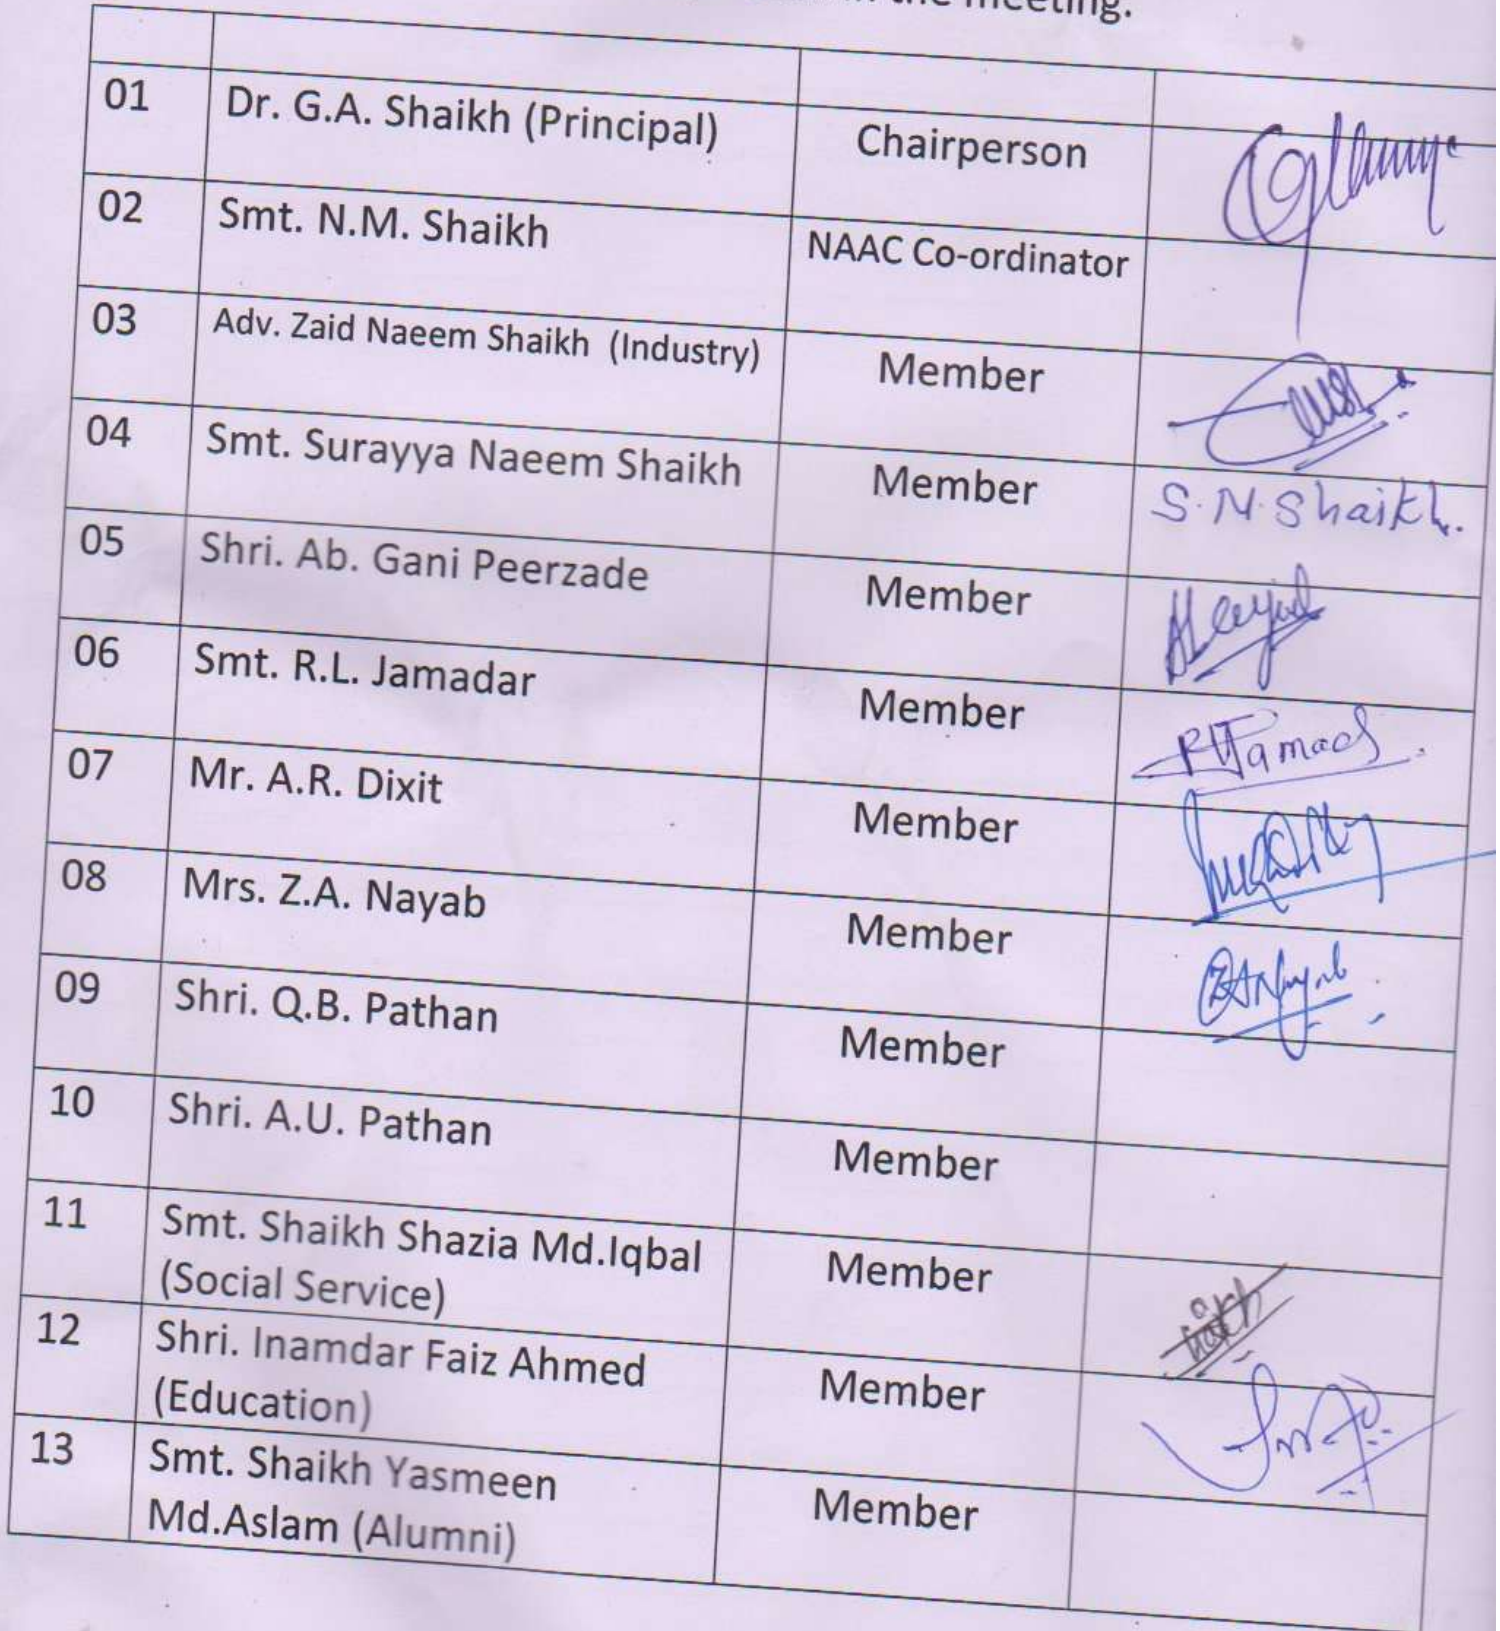 the meeting.
01 Dr. G.A. Shaikh (Principal) Chairperson
02 Smt. N.M. Shaikh NAAC Co-ordinator
03 Adv. Zaid Naeem Shaikh (Industry) Member
04 Smt. Surayya Naeem Shaikh Member S.N.Shaikh.
05 Shri. Ab. Gani Peerzade Member
06 Smt. R.L. Jamadar Member
07 Mr. A.R. Dixit Member
08 Mrs. Z.A. Nayab Member
09 Shri. Q.B. Pathan Member
10 Shri. A.U. Pathan Member
11 Smt. Shaikh Shazia Md.Iqbal Member
(Social Service)
12 Shri. Inamdar Faiz Ahmed Member
(Education)
13 Smt. Shaikh Yasmeen Member
Md.Aslam (Alumni)